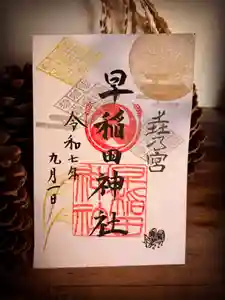 乃宮
早稲田神社
令和七年
九月一日